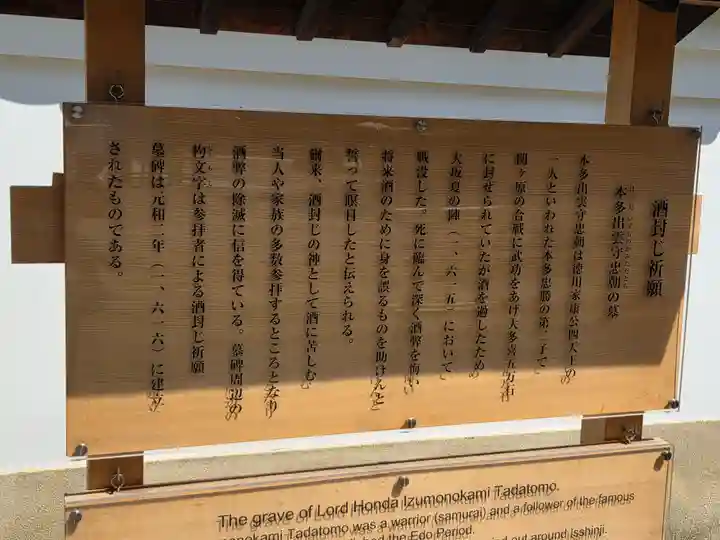 酒封じ祈願
本多出雲守忠朝の墓
本多出雲守忠朝は徳川家康公四天王の
一人といわれた本多忠勝の第二子で
関ヶ原の合戦に武功をあげ大多喜五万石
に封せられていたが酒を過したため
大坂夏の陣（一、六一五）において
戦没した。死に臨んで深く酒弊を悔い
将来酒のために身を誤るものを助けんと
誓って瞑目したと伝えられる。
爾来、酒封じの神として酒に苦しむ
当人や家族の多数参拝するところとなり
酒弊の除滅に信を得ている。墓碑周辺の
杓文字は参拝者による酒封じ祈願
墓碑は元和二年（一、六一六）に建立
されたものである。
The grave of Lord Honda Izumonokami Tadatomo.
monokami Tadatomo was a warrior (samurai) and a follower of the famous
the Edo Period.
out around Isshinji.